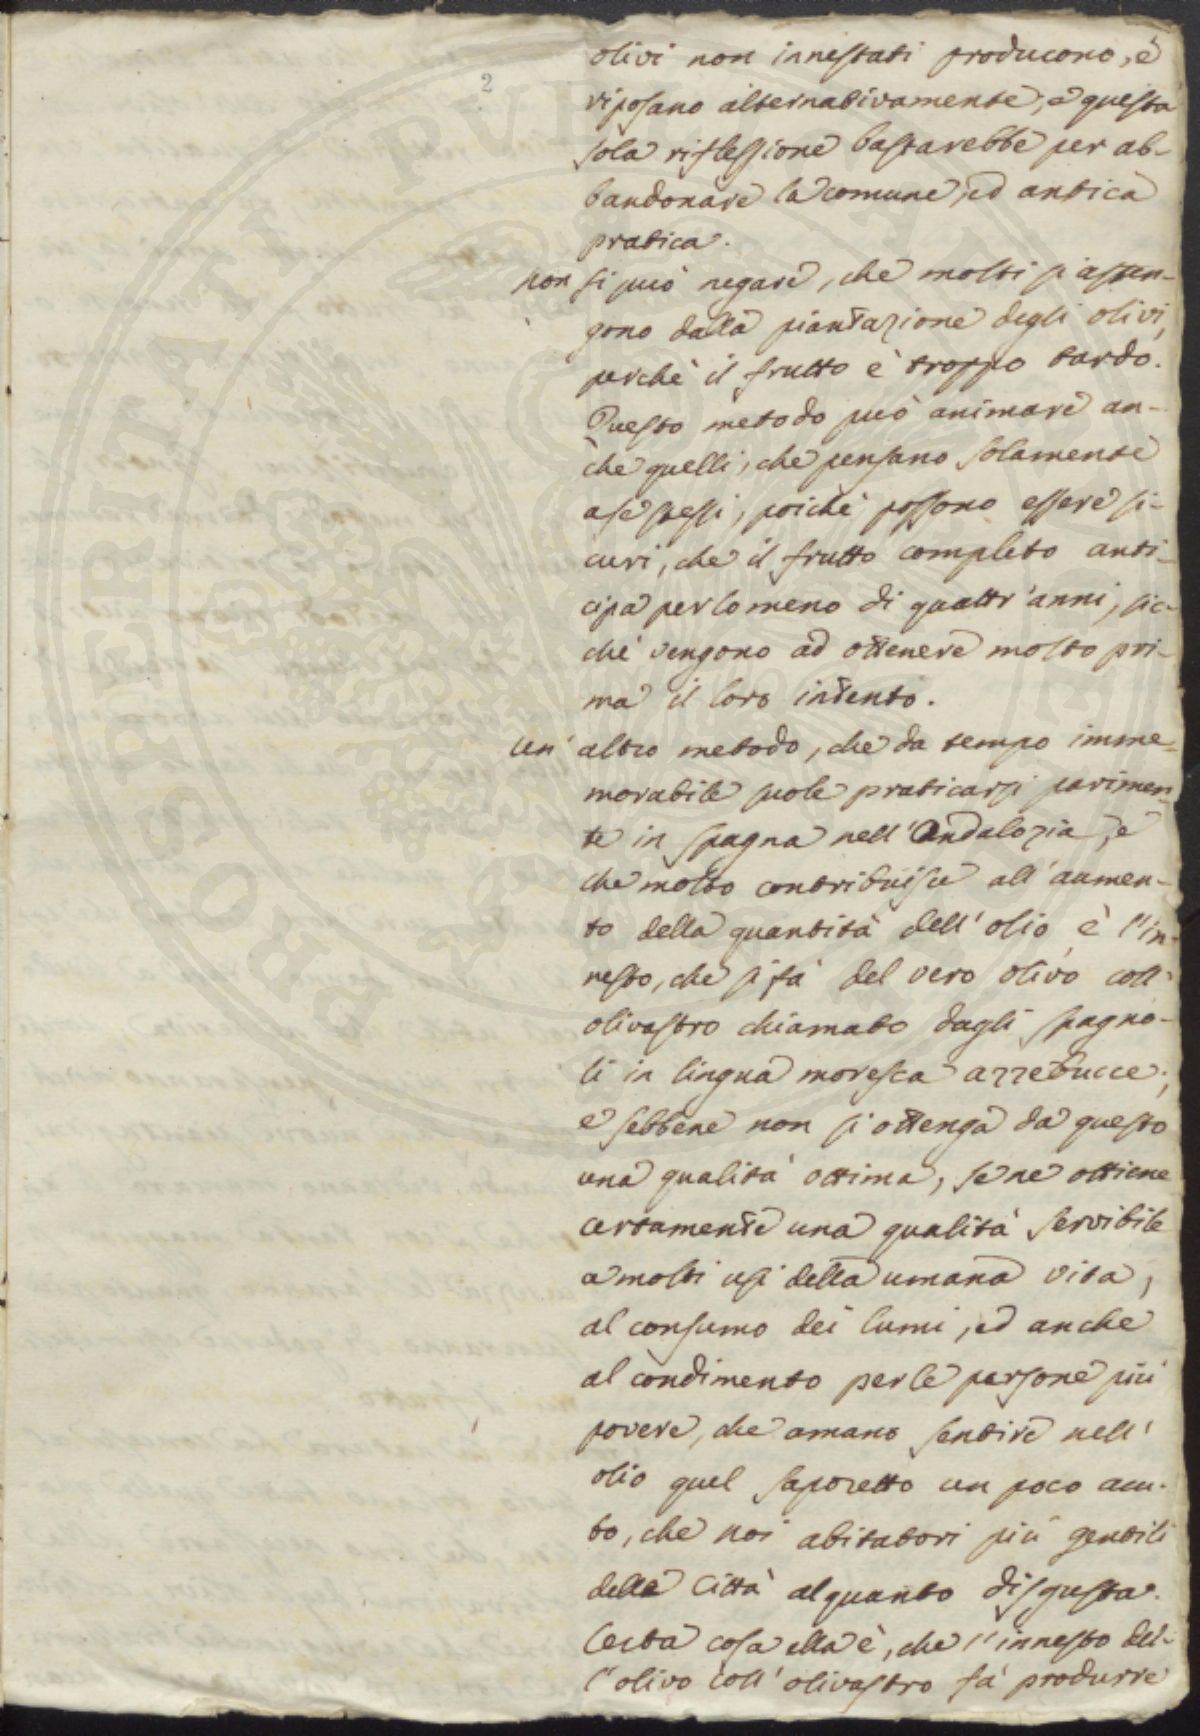 2
olivi non innestati producono, e
riposano alternativamente, e questa
sola riflessione bastarebbe per ab-
bandonare la comune, ed antica
pratica.
Non si può negare, che molti si asten-
gono dalla piantazione degli olivi,
perchè il frutto è troppo tardo.
Questo metodo può animare an-
che quelli, che pensano solamente
a se stessi, poichè possono essere si-
curi, che il frutto completo anti-
cipa perlomeno di quattr'anni, sic-
chè vengono ad ottenere molto pri-
ma il loro intento.
Un' altro metodo, che da tempo imme-
morabile suole praticarsi parimen-
te in Spagna nell'Andalozia, e
che molto contribuisce all'aumen-
to della quantità dell'olio è l'in-
nesto, che si fà del vero olivo coll'
olivastro chiamato dagli spagno-
li in lingua moresca azzebucce;
e sebbene non si ottenga da questo
una qualità ottima, se ne ottiene
certamente una qualità servibile
a molti usi della umana vita,
al consumo dei lumi, ed anche
al condimento per le persone più
povere, che amano sentire nell'
olio quel saporetto un poco acu-
to, che noi abitatori più gentili
delle Città alquanto disgusta.
Certa cosa ella è, che l'innesto del-
l'olivo coll'olivastro fà produrre
PROSPERITATI PVBLICAE